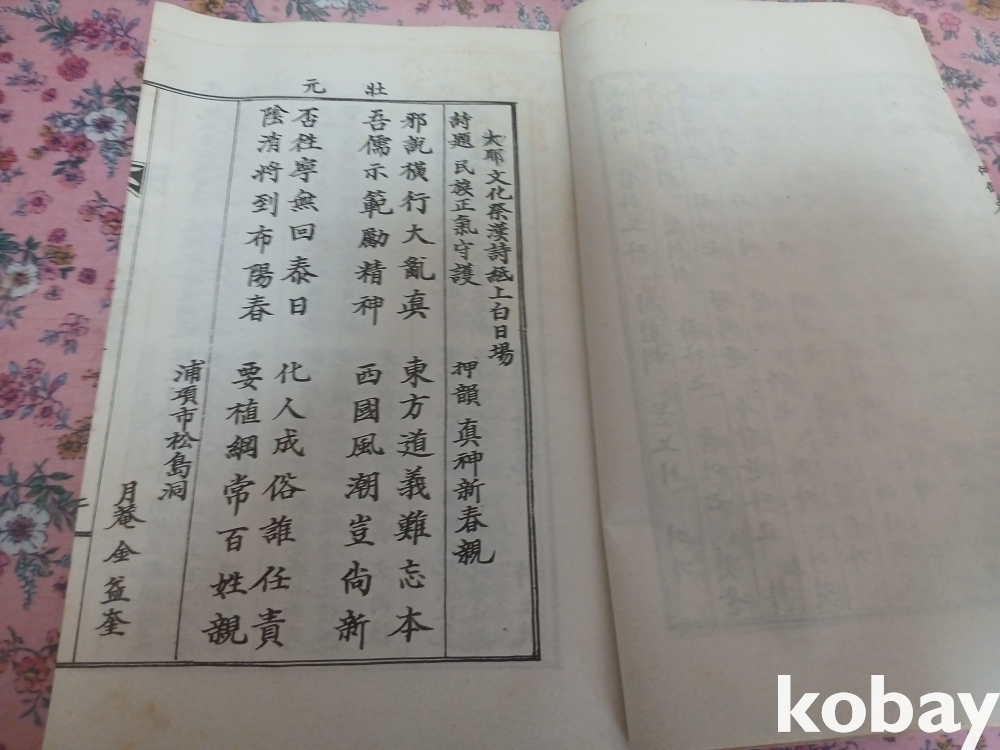 壯元
大耶文化祭漢詩紙上白日場
詩題 民族正氣守護 押韻 真神新春親
邪說橫行大亂真 東方道義難忘本
吾儒示範勵精神 西國風潮豈尙新
否往寧無回泰日 化人成俗誰任責
陰消將到布陽春 要植綱常百姓親
浦項市松島洞
月菴 金益奎
kobay